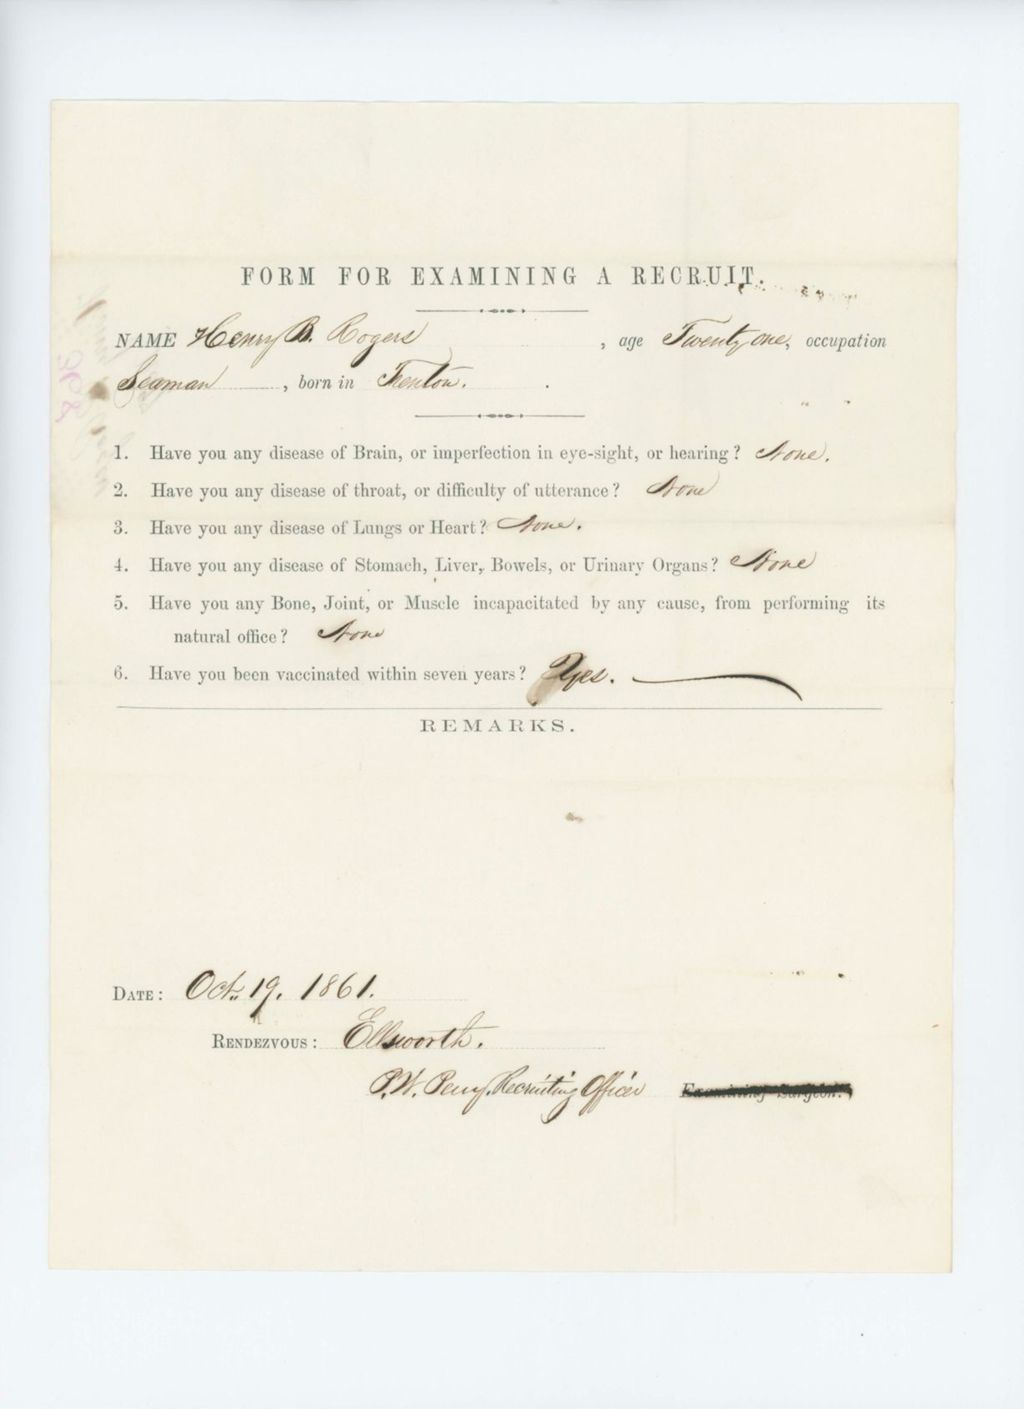 FORM FOR EXAMINING A RECRUIT.
NAME Henry B. Rogers , age Twenty one, occupation
Seaman , born in Trenton.
1. Have you any disease of Brain, or imperfection in eye-sight, or hearing? None.
2. Have you any disease of throat, or difficulty of utterance? None
3. Have you any disease of Lungs or Heart? None.
4. Have you any disease of Stomach, Liver, Bowels, or Urinary Organs? None
5. Have you any Bone, Joint, or Muscle incapacitated by any cause, from performing its
natural office? None
6. Have you been vaccinated within seven years? Yes.
REMARKS.
DATE: Oct. 19. 1861.
RENDEZVOUS: Ellsworth.
P.W. Perry, Recruiting Officer Examining Surgeon.